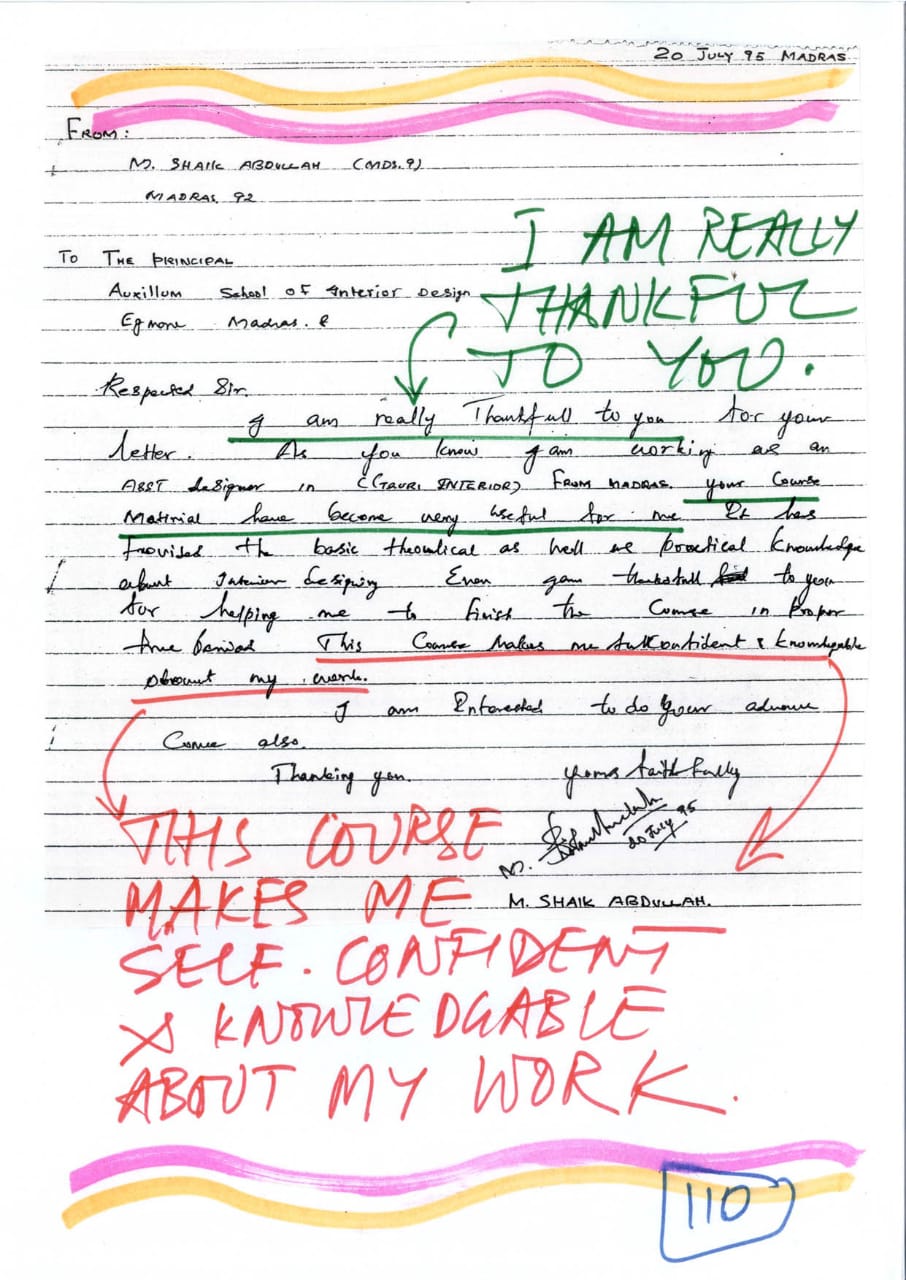 20 JULY 95 MADRAS
FROM:
M. SHAIK ABDULLAH (MDS.9)
MADRAS. 92
I AM REALLY
THANKFUL
TO YOU.
TO THE PRINCIPAL
Auxillum School of Interior Design
Egmore Madras. 8
Respected Sir.
I am really Thankfull to you for your
letter. As you know I am working as an
ASST designer in (GAURI INTERIOR) FROM MADRAS. your Course
Material have become very useful for me It has
Provided the basic theoretical as well as practical knowledge
about Interior designing Even I am thankfull to you
for helping me to finish the Course in Proper
time Period This Course Makes me selfconfident & knowledgable
about my work.
I am Interested to do your advance
Course also.
Thanking you. yours faithfully
M.
20 July 95
M. SHAIK ABDULLAH.
THIS COURSE
MAKES ME
SELF. CONFIDENT
& KNOWLEDGABLE
ABOUT MY WORK.
110